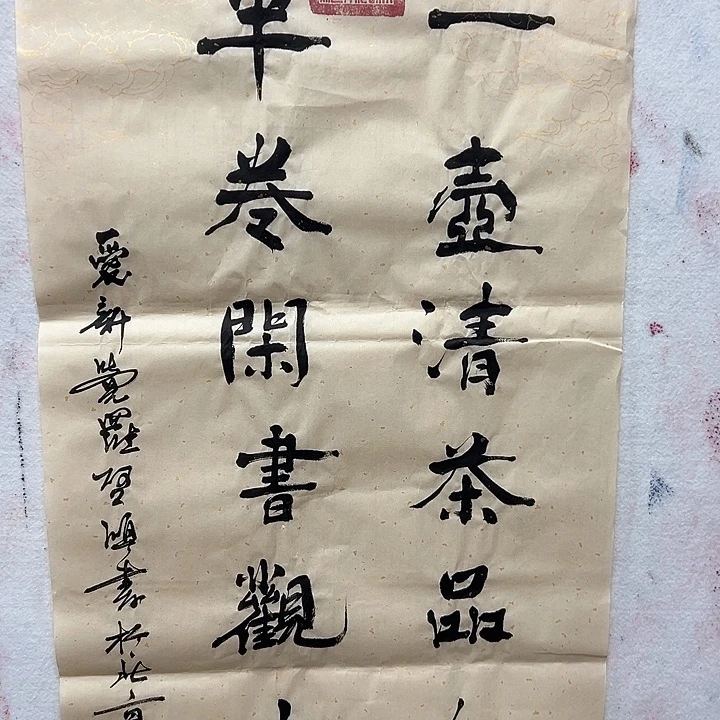 一壺清茶品
卷閑書觀
愛新覺羅書於北京